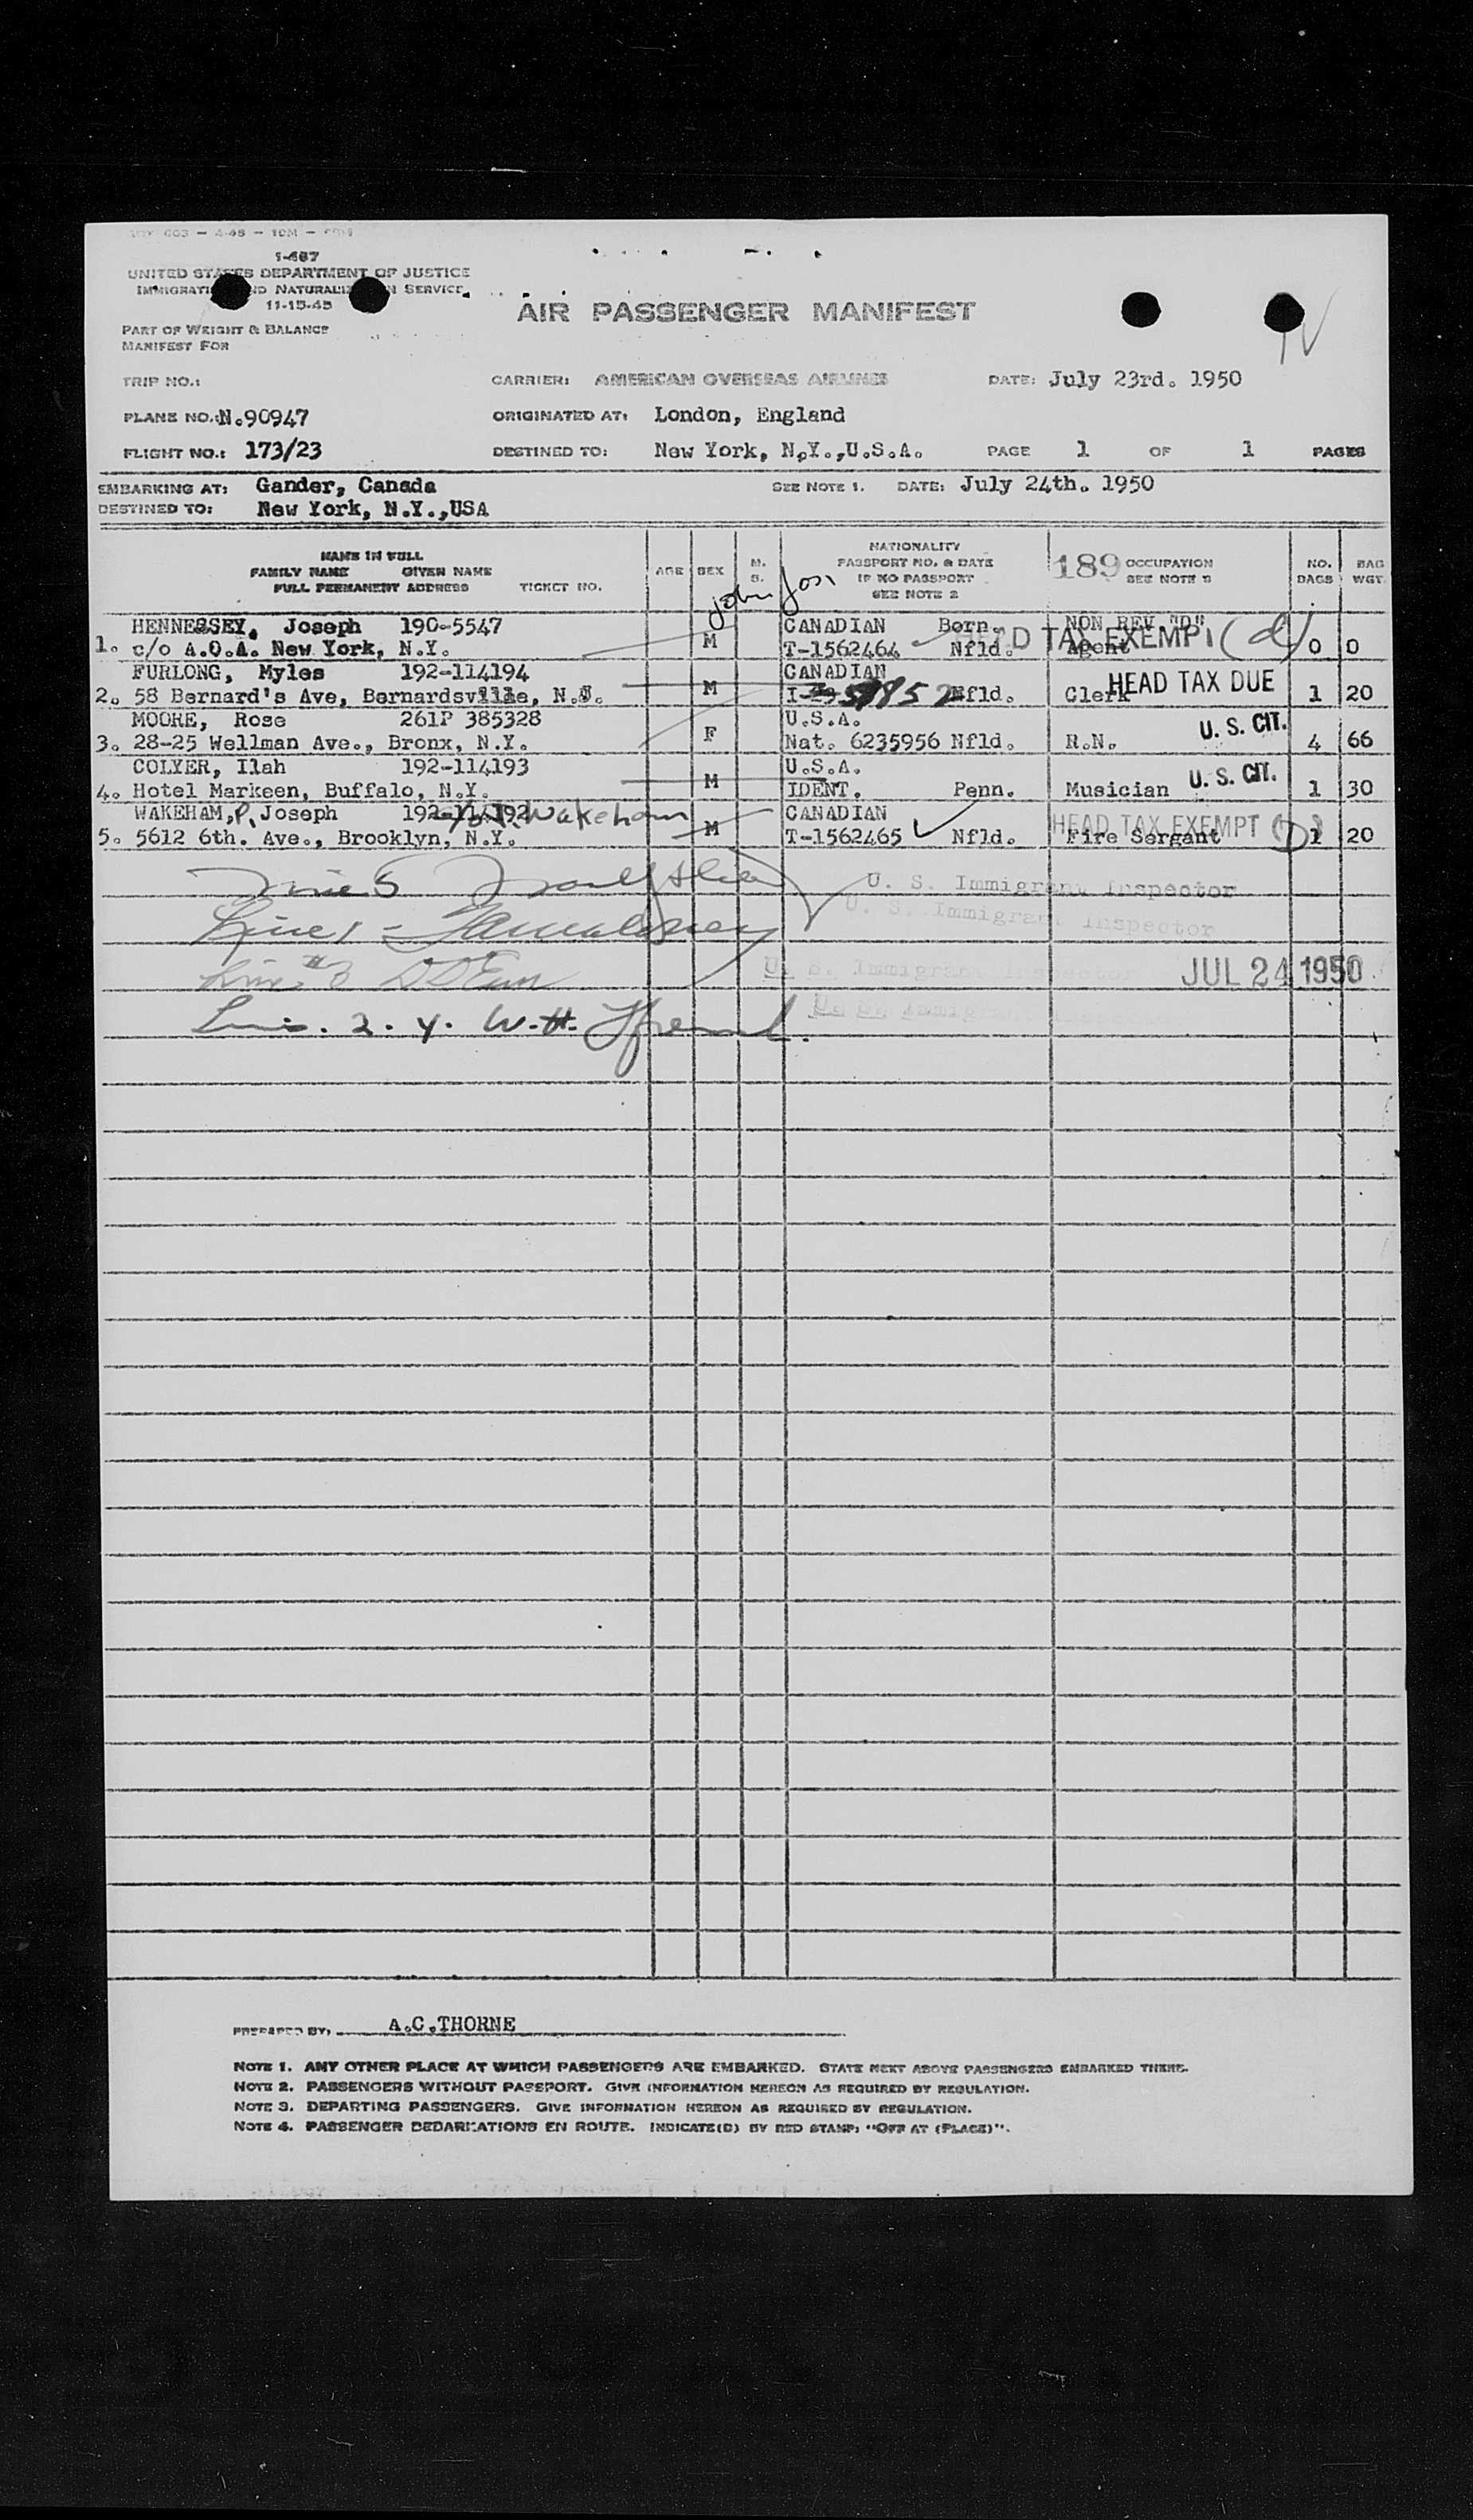 1-467
UNITED STATES DEPARTMENT OF JUSTICE
IMMIGRATION AND NATURALIZATION SERVICE
11-15-45
AIR PASSENGER MANIFEST
PART OF WEIGHT & BALANCE
MANIFEST FOR
TRIP NO.: CARRIER: AMERICAN OVERSEAS AIRLINES DATE: July 23rd. 1950
PLANE NO.: N.90947 ORIGINATED AT: London, England
FLIGHT NO.: 173/23 DESTINED TO: New York, N.Y.,U.S.A. PAGE 1 OF 1 PAGES
EMBARKING AT: Gander, Canada SEE NOTE 1. DATE: July 24th. 1950
DESTINED TO: New York, N.Y.,USA
NAME IN FULL
FAMILY NAME GIVEN NAME
FULL PERMANENT ADDRESS TICKET NO. AGE SEX M. S. NATIONALITY PASSPORT NO. & DATE IF NO PASSPORT SEE NOTE 2 189 OCCUPATION SEE NOTE 3 NO. BAGS BAG WGT.
John Jos
HENNESSEY, Joseph 190-5547 CANADIAN Born. NON REV "D"
1. c/o A.O.A. New York, N.Y. M T-1562464 Nfld. Agent HEAD TAX EXEMPT (d) 0 0
FURLONG, Myles 192-114194 CANADIAN
2. 58 Bernard's Ave, Bernardsville, N.J. M Nfld. Clerk HEAD TAX DUE 1 20
MOORE, Rose 261P 385328 U.S.A.
3. 28-25 Wellman Ave., Bronx, N.Y. F Nat. 6235956 Nfld. R.N. U.S. CIT. 4 66
COLYER, Ilah 192-114193 U.S.A.
4. Hotel Markeen, Buffalo, N.Y. M IDENT. Penn. Musician U.S. CIT. 1 30
WAKEHAM, P. Joseph 192-114192 Wakeham CANADIAN
5. 5612 6th. Ave., Brooklyn, N.Y. M T-1562465 Nfld. Fire Sergant HEAD TAX EXEMPT 1 20
Line 5 U. S. Immigrant Inspector
Line 1 - U. S. Immigrant Inspector
Line #3 U. S. Immigrant Inspector JUL 24 1950
2. 4. W.H. U. S. Immigrant
PREPARED BY: A.C.THORNE
NOTE 1. ANY OTHER PLACE AT WHICH PASSENGERS ARE EMBARKED. STATE NEXT ABOVE PASSENGERS EMBARKED THERE.
NOTE 2. PASSENGERS WITHOUT PASSPORT. GIVE INFORMATION HEREON AS REQUIRED BY REGULATION.
NOTE 3. DEPARTING PASSENGERS. GIVE INFORMATION HEREON AS REQUIRED BY REGULATION.
NOTE 4. PASSENGER DEBARKATIONS EN ROUTE. INDICATE(D) BY RED STAMP: "OFF AT (PLACE)".